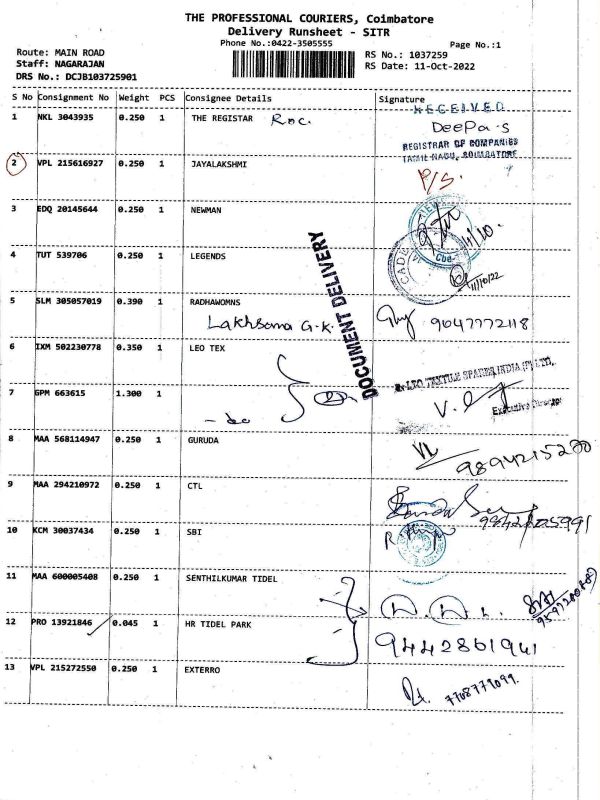 THE PROFESSIONAL COURIERS, Coimbatore
Delivery Runsheet - SITR
Phone No.:0422-3505555
Page No.:1
Route: MAIN ROAD
RS No.: 1037259
Staff: NAGARAJAN
RS Date: 11-Oct-2022
DRS No.: DCJB103725901
S No Consignment No Weight PCS Consignee Details Signature
RECEIVED
1 NKL 3043935 0.250 1 THE REGISTAR Roc.
DeePa.S
REGISTRAR OF COMPANIES
TAMIL NADU, COIMBATORE
2 VPL 215616927 0.250 1 JAYALAKSHMI
P/S.
3 EDQ 20145644 0.250 1 NEWMAN
11/10.
Cbe
4 TUT 539706 0.250 1 LEGENDS
CADE
11/10/22
DOCUMENT DELIVERY
5 SLM 305057019 0.390 1 RADHAWOMNS
Lakhsana G.K. 9047772118
6 IXM 502230778 0.350 1 LEO TEX
LEO TEXTILE SPARES INDIA (P) LTD.
7 GPM 663615 1.300 1
- do
Executive Director
8 MAA 568114947 0.250 1 GURUDA
9894215280
9 MAA 294210972 0.250 1 CTL
10 KCM 30037434 0.250 1 SBI
11 MAA 600005408 0.250 1 SENTHILKUMAR TIDEL
12 PRO 13921846 0.045 1 HR TIDEL PARK
9442861941
13 VPL 215272550 0.250 1 EXTERRO
7708779099.